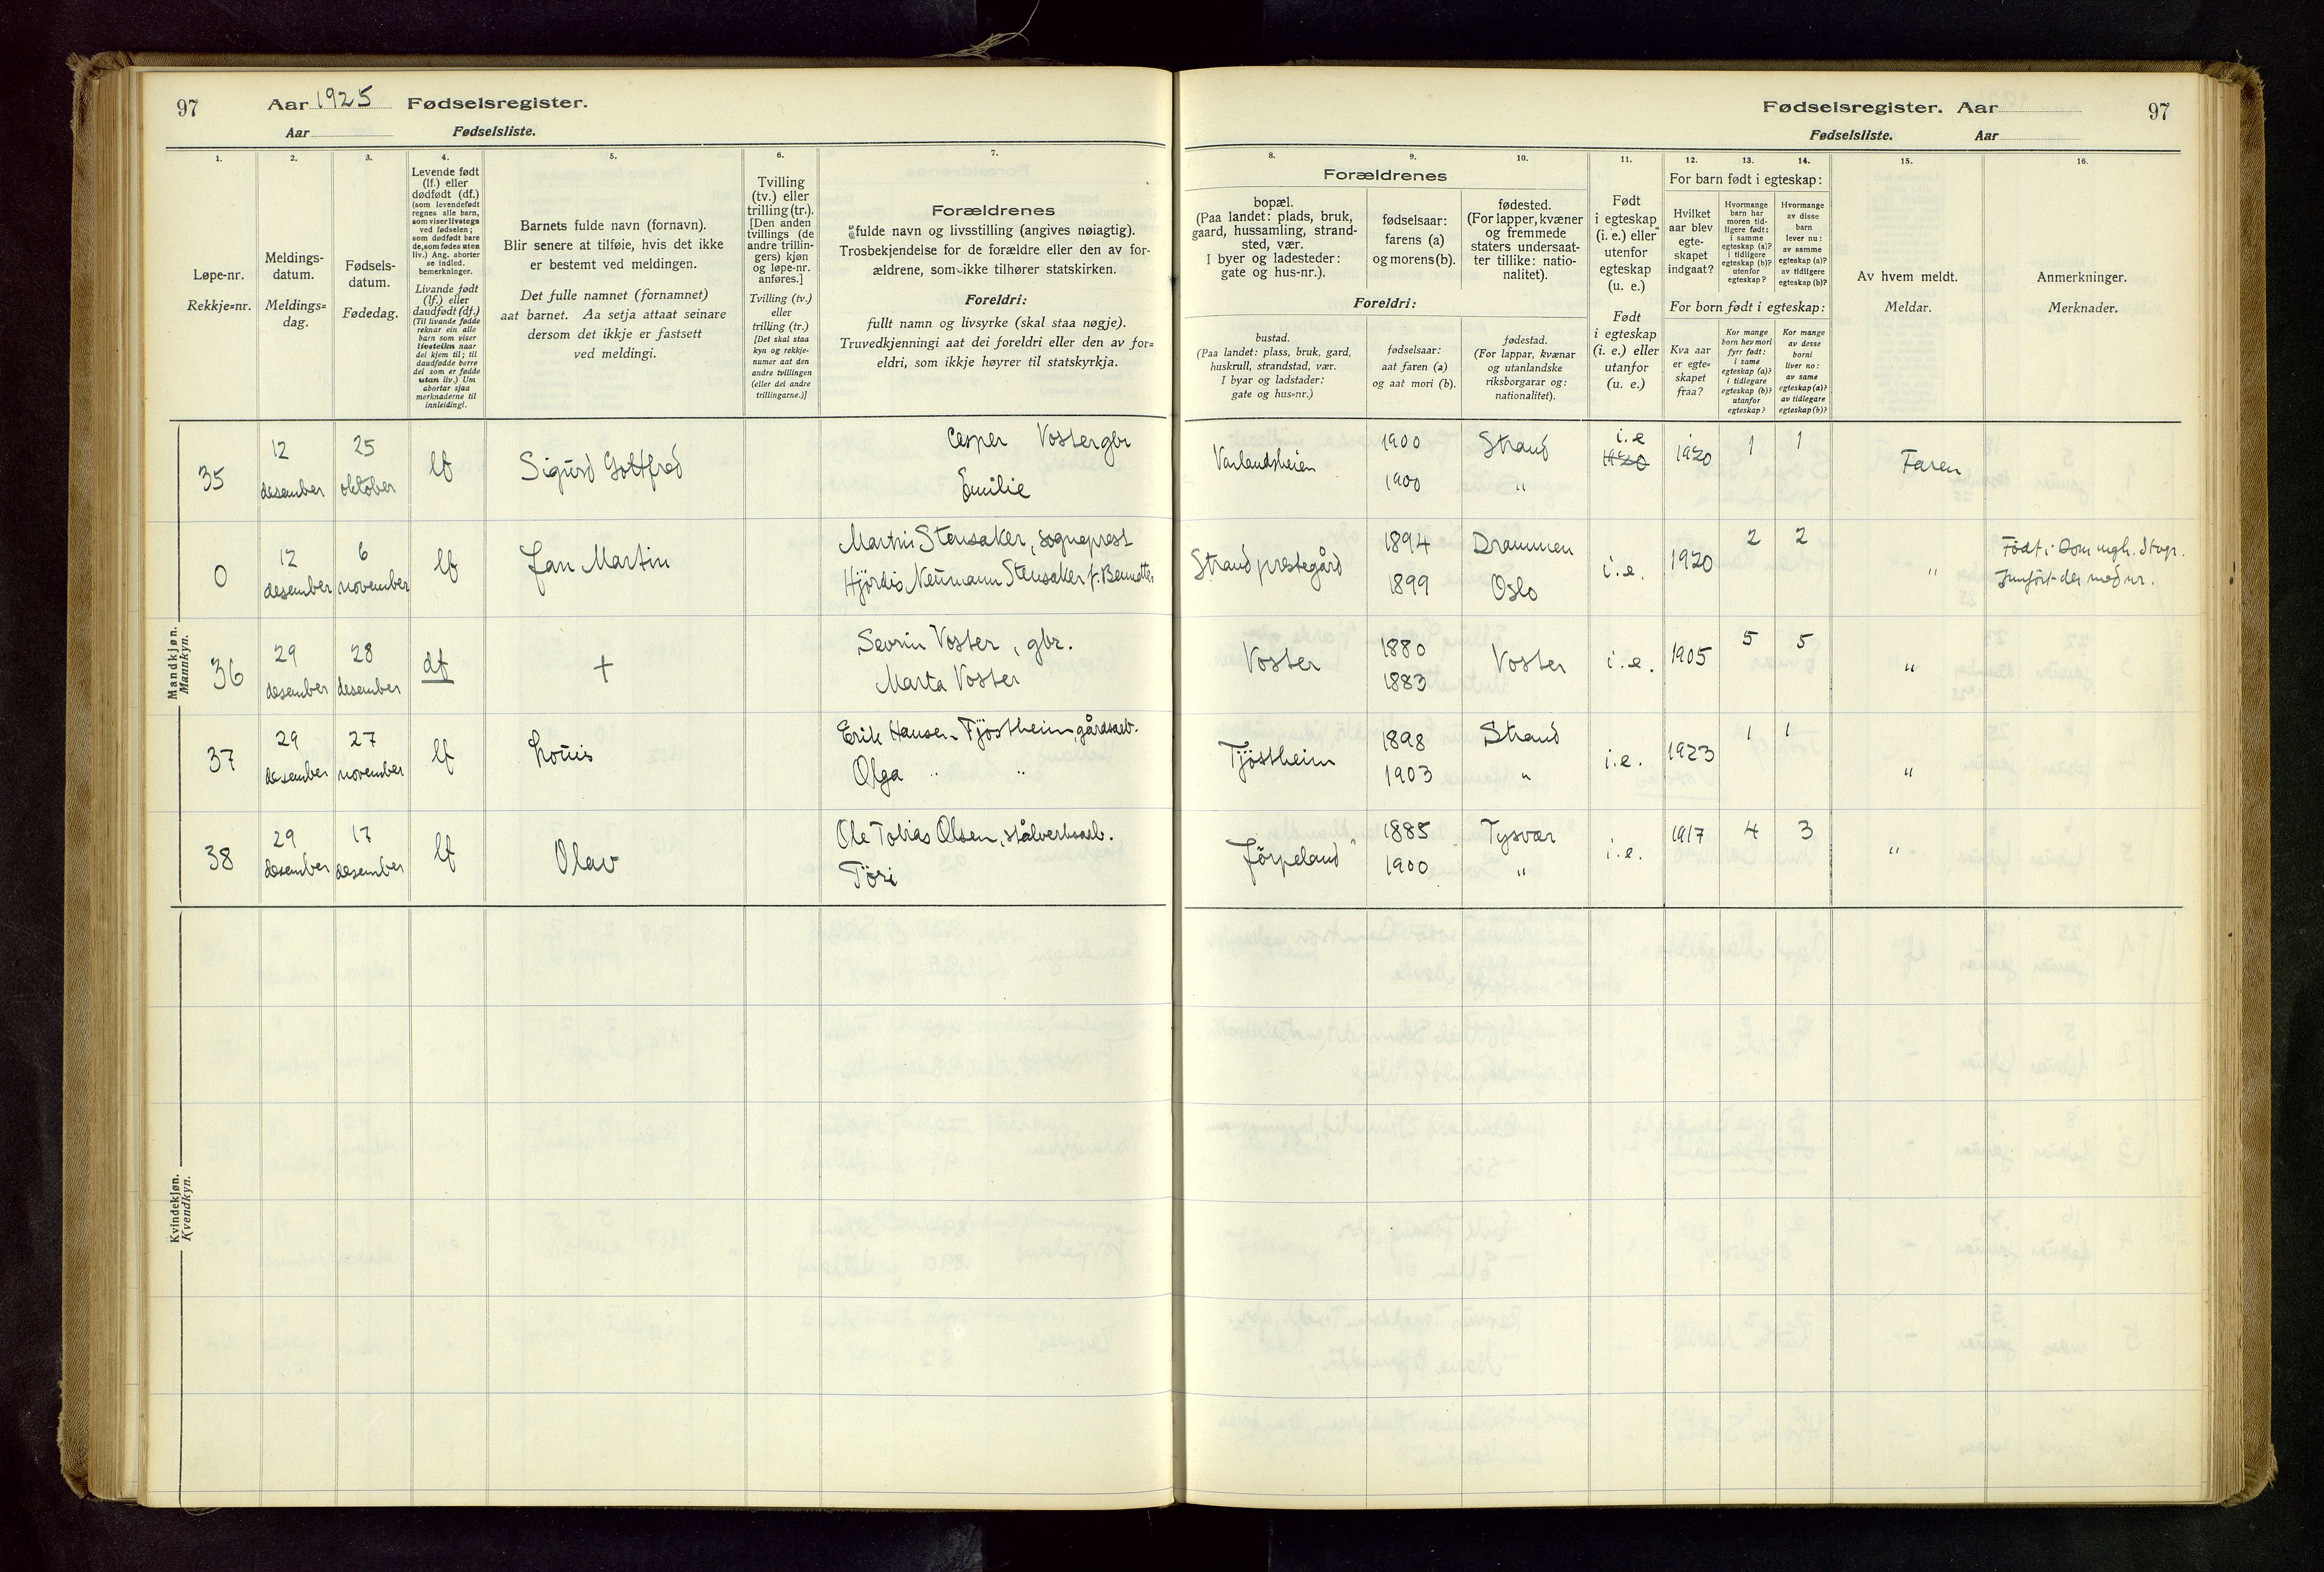 97 Aar 1925 Fødselsregister.
Aar Fødselsliste.
Fødselsregister. Aar 97
Fødselsliste. Aar
1. 2. 3. 4. 5. 6. 7.
Løpe-nr.
Rekkje=nr.
Meldings-
datum.
Meldings=
dag.
Fødsels-
datum.
Fødedag.
Levende født
(lf.) eller
dødfødt (df.)
(som levendefødt
regnes alle barn,
som viser livstegn
ved fødselen;
som dødfødt bare
de, som fødes uten
liv.) Ang. aborter
se indled.
bemerkninger.
Livande født
(lf.) eller
daudfødt (df.)
(Til livande fødde
reknar ein alle
barn som viser
livsteikn naar
dei kjem til; til
daudfødde berre
dei som er fødde
utan liv.) Um
abortar sjaa
merknaderne til
innleidingi.
Barnets fulde navn (fornavn).
Blir senere at tilføie, hvis det ikke
er bestemt ved meldingen.
Det fulle namnet (fornamnet)
aat barnet. Aa setja attaat seinare
dersom det ikkje er fastsett
ved meldingi.
Tvilling
(tv.) eller
trilling (tr.).
[Den anden
tvillings (de
andre trillin-
gers) kjøn
og løpe-nr.
anføres.]
Tvilling (tv.)
eller
trilling (tr.)
[Det skal staa
kyn og rekkje-
numer aat den
andre tvillingen
(eller dei andre
trillingarne.)]
Forældrenes
fulde navn og livsstilling (angives nøiagtig).
Trosbekjendelse for de forældre eller den av for-
ældrene, som ikke tilhører statskirken.
Foreldri:
fullt namn og livsyrke (skal staa nøgje).
Truvedkjenningi aat dei foreldri eller den av for=
eldri, som ikkje høyrer til statskyrkja.
8. 9. 10. 11. 12. 13. 14. 15. 16.
Forældrenes
bopæl.
(Paa landet: plads, bruk,
gaard, hussamling, strand-
sted, vær.
I byer og ladesteder:
gate og hus-nr.).
fødselsaar:
farens (a)
og morens (b).
fødested.
(For lapper, kvæner
og fremmede
staters undersaat-
ter tillike: natio-
nalitet).
Foreldri:
bustad.
(Paa landet: plass, bruk, gard,
huskrull, strandstad, vær.
I byar og ladstader:
gate og hus=nr.)
fødselsaar:
aat faren (a)
og aat mori (b).
fødestad.
(For lappar, kvænar
og utanlandske
riksborgarar og:
nationalitet).
Født
i egteskap
(i. e.) eller
utenfor
egteskap
(u. e.)
Født
i egteskap
(i. e.) eller
utanfor
(u. e.)
For barn født i egteskap:
Hvilket
aar blev
egte-
skapet
indgaat?
Hvormange
barn har
moren tid-
ligere født:
i samme
egteskap (a)?
i tidligere
egteskap (b)?
utenfor
egteskap?
Hvormange
av disse
barn
lever nu:
av samme
egteskap (a)?
av tidligere
egteskap (b)?
For born født i egteskap:
Kva aar
er egte=
skapet
fraa?
Kor mange
born hev mori
fyrr født:
i same
egteskap (a)?
i tidlegare
egteskap (b)?
utanfor
egteskap?
Kor mange
av desse
borni
liver no:
av same
egteskap (a)?
av tidlegare
egteskap (b)?
Av hvem meldt.
Meldar.
Anmerkninger.
Merknader.
Mandkjøn.
Mannkyn.
35 12 desember 25 oktober lf Sigurd Gottfred Casper Voster gbr Emilie Varlandsheien 1900 1900 Strand " i.e 1920 1920 1 1 Faren
0 12 desember 6 november lf Jan Martin Martin Stensaker, sogneprest Hjördis Neumann Stensaker f. Strand prestegård 1894 1899 Drammen Oslo i.e. 1920 2 2 " Født i
36 29 desember 28 desember df + Sevrin Voster, gbr. Marta Voster Voster 1880 1883 Voster i.e. 1905 5 5 "
37 29 desember 27 november lf Louis Erik Hansen Tjöstheim, gårdsarb. Olga " " Tjöstheim 1898 1903 Strand " i.e. 1923 1 1 "
38 29 desember 17 desember lf Olav Ole Tobias Olsen, stålverksarb. Töri Jörpeland 1885 1900 Tysvær " i.e. 1917 4 3 "
Kvindekjøn.
Kvendkyn.